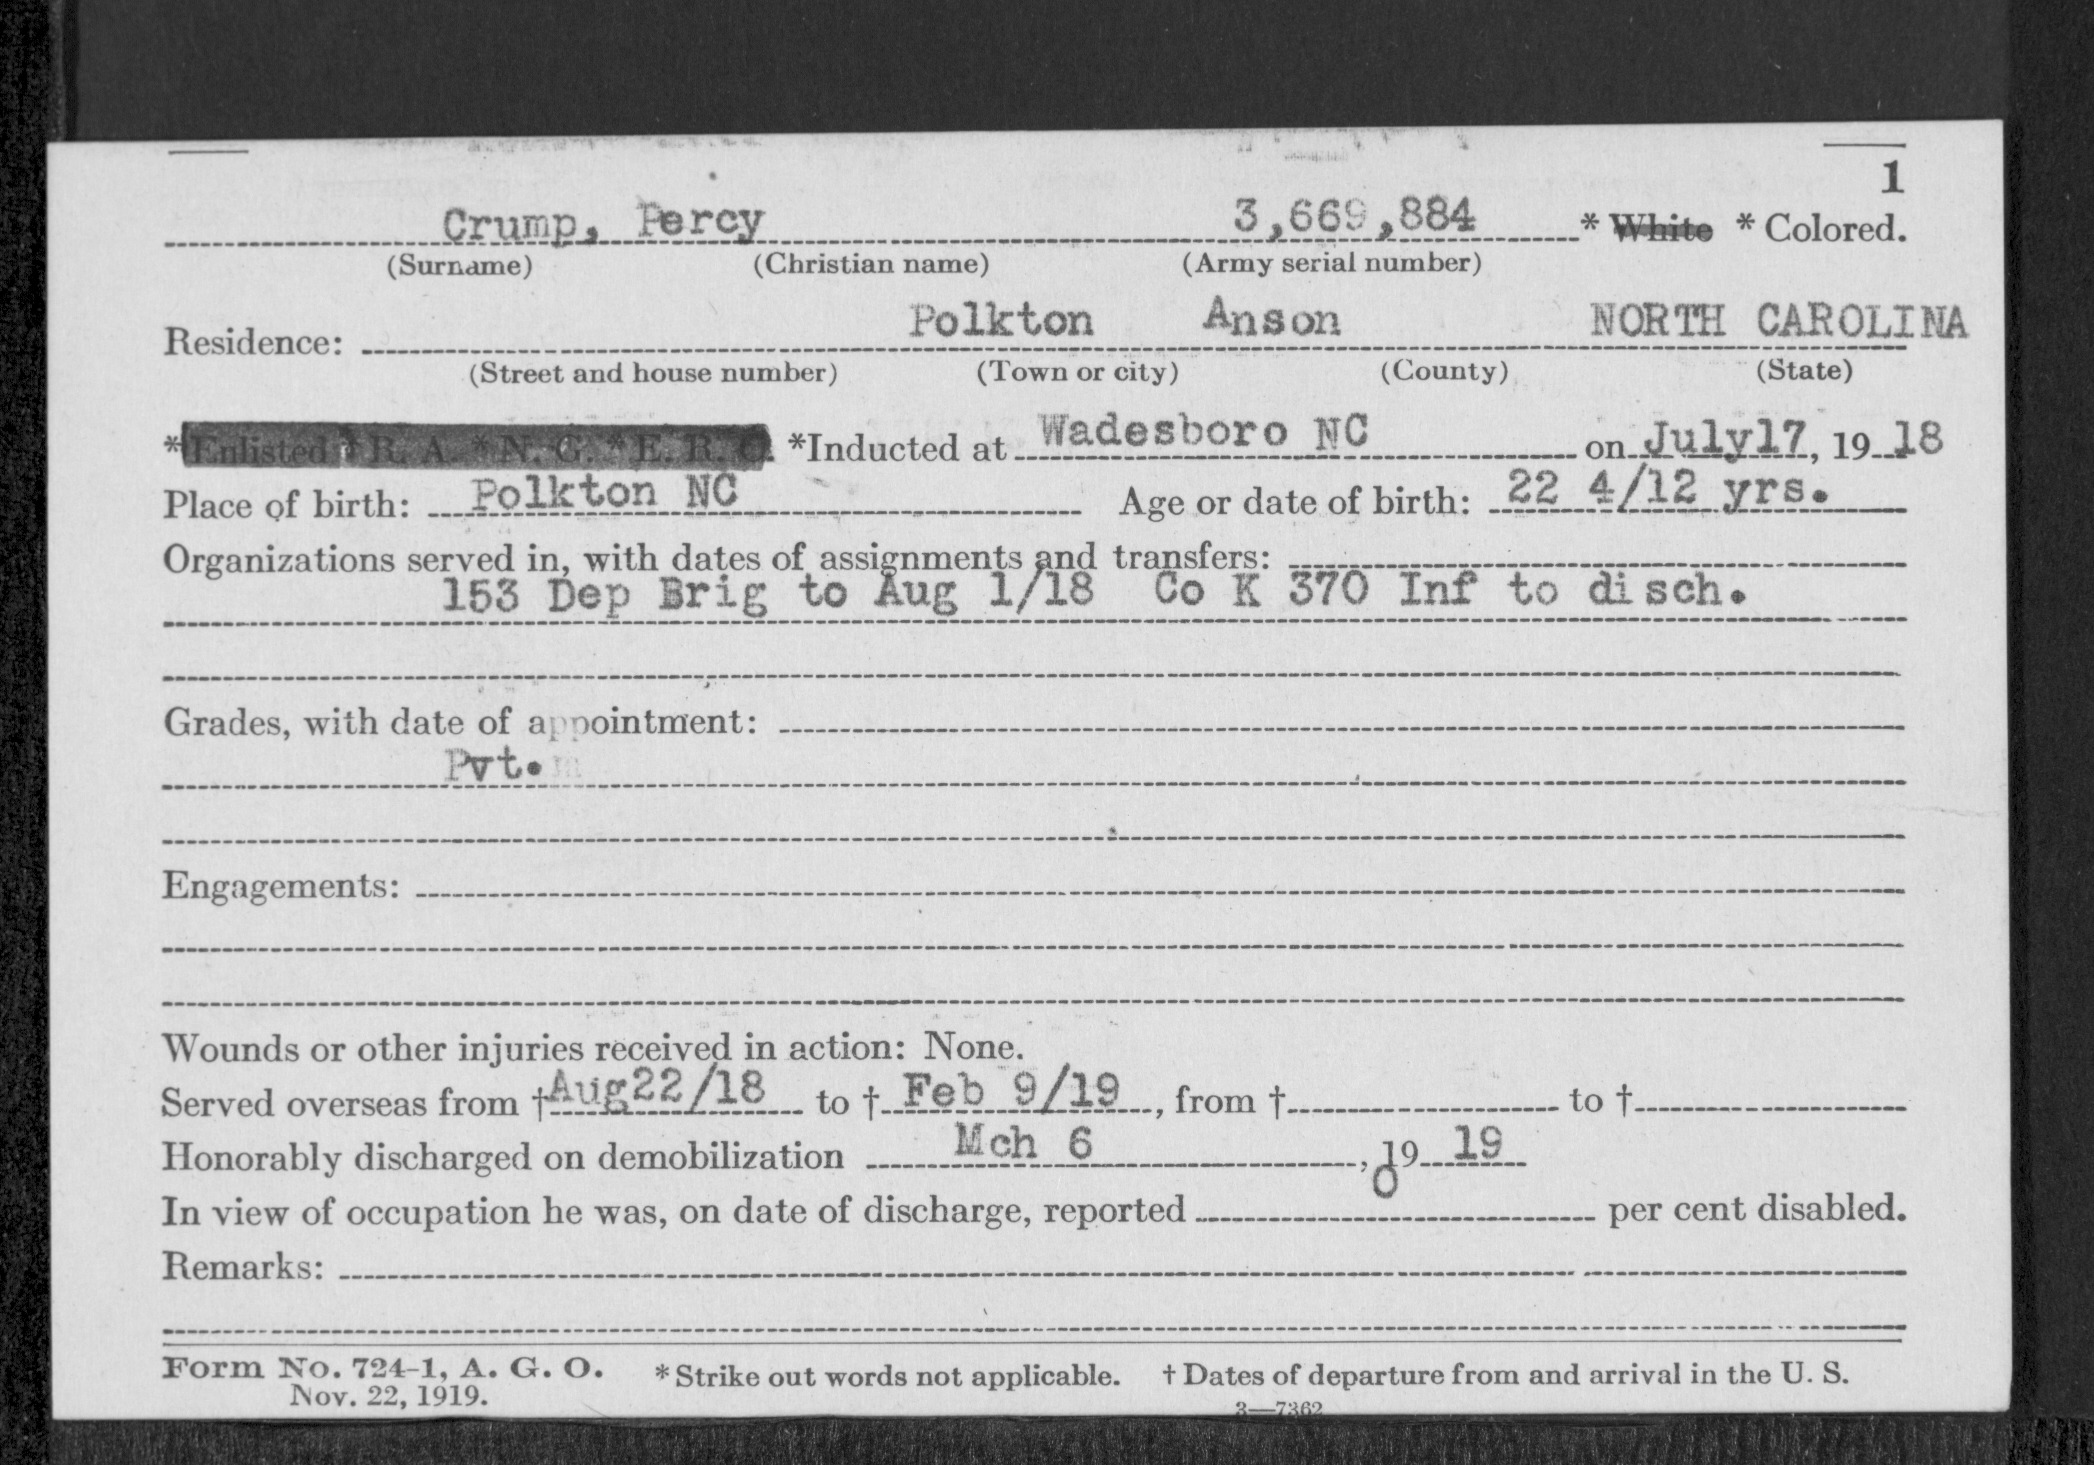 1
Crump, Percy 3,669,884 * White * Colored.
(Surname) (Christian name) (Army serial number)
Residence: Polkton Anson NORTH CAROLINA
(Street and house number) (Town or city) (County) (State)
*Enlisted * R. A. * N. G. * E. R. C. *Inducted at Wadesboro NC on July17, 19 18
Place of birth: Polkton NC Age or date of birth: 22 4/12 yrs.
Organizations served in, with dates of assignments and transfers:
153 Dep Brig to Aug 1/18 Co K 370 Inf to disch.
Grades, with date of appointment:
Pvt.
Engagements:
Wounds or other injuries received in action: None.
Served overseas from † Aug22/18 to † Feb 9/19, from † to †
Honorably discharged on demobilization Mch 6, 19 19
In view of occupation he was, on date of discharge, reported 0 per cent disabled.
Remarks:
Form No. 724-1, A. G. O. * Strike out words not applicable. † Dates of departure from and arrival in the U. S.
Nov. 22, 1919.
3—7362